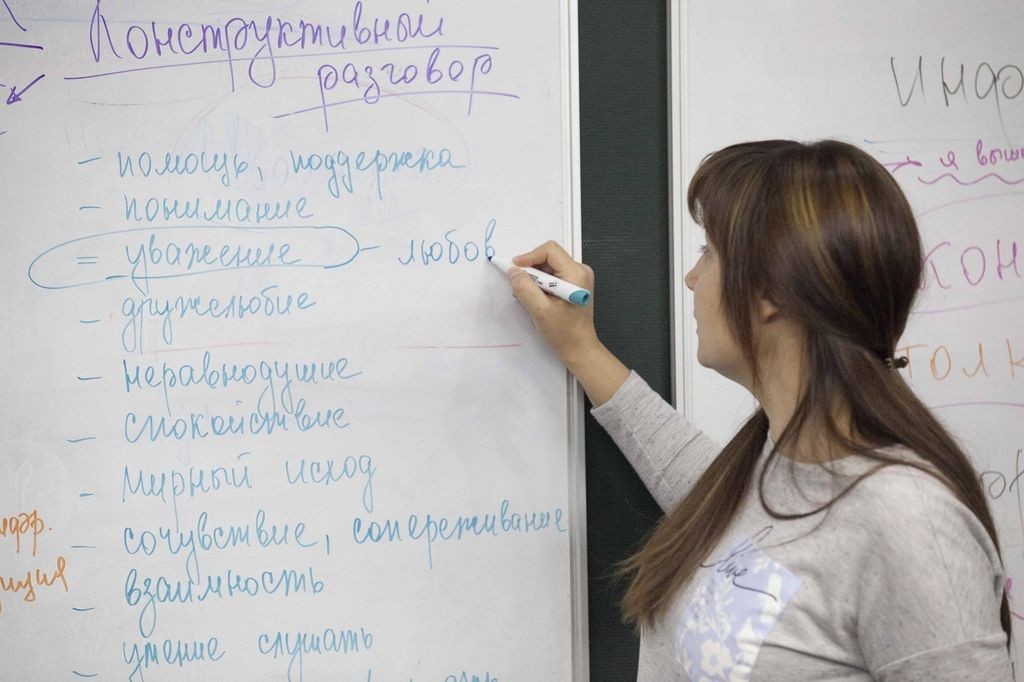 Конструктивный
разговор
- помощь, поддержка
- понимание
= уважение - любов
- дружелюбие
- неравнодушие
- спокойствие
- мирный исход
- сочувствие, сопереживание
- взаимность
- умение слушать
я выш
кон
толк